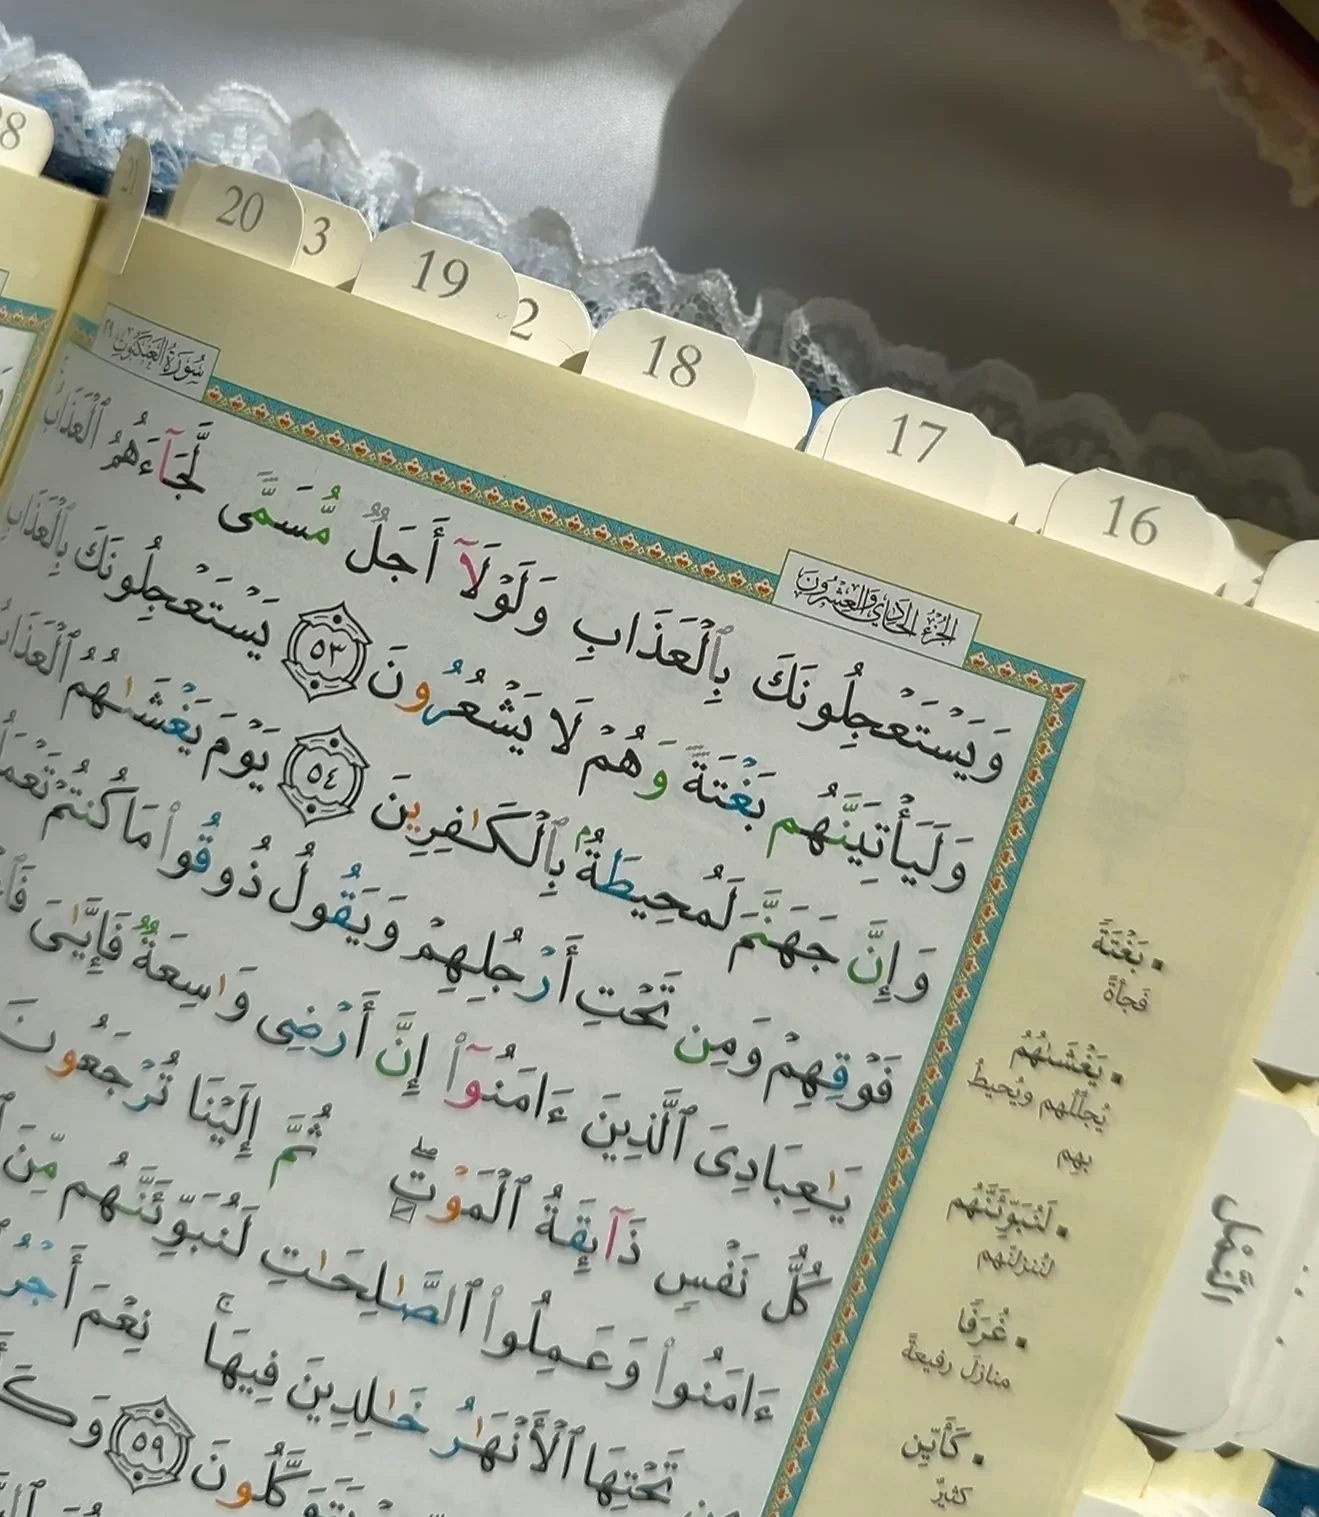 28
20
3
19
2
18
17
16
سُورَةُ العَنكَبُوتِ ٢٩
الجُزْءُ الحَادِي وَالعِشْرُونَ
وَيَسْتَعْجِلُونَكَ بِٱلْعَذَابِ وَلَوْلَآ أَجَلٌ مُّسَمًّى لَّجَآءَهُمُ ٱلْعَذَابُ
وَلَيَأْتِيَنَّهُم بَغْتَةً وَهُمْ لَا يَشْعُرُونَ ٥٣ يَسْتَعْجِلُونَكَ بِٱلْعَذَابِ
وَإِنَّ جَهَنَّمَ لَمُحِيطَةٌۢ بِٱلْكَٰفِرِينَ ٥٤ يَوْمَ يَغْشَىٰهُمُ ٱلْعَذَابُ
فَوْقِهِمْ وَمِن تَحْتِ أَرْجُلِهِمْ وَيَقُولُ ذُوقُوا۟ مَا كُنتُمْ
يَٰعِبَادِىَ ٱلَّذِينَ ءَامَنُوٓا۟ إِنَّ أَرْضِى وَٰسِعَةٌ فَإِيَّٰىَ
كُلُّ نَفْسٍ ذَآئِقَةُ ٱلْمَوْتِ ۖ ثُمَّ إِلَيْنَا تُرْجَعُونَ
ءَامَنُوا۟ وَعَمِلُوا۟ ٱلصَّٰلِحَٰتِ لَنُبَوِّئَنَّهُم مِّنَ
تَحْتِهَا ٱلْأَنْهَٰرُ خَٰلِدِينَ فِيهَا ۚ نِعْمَ أَجْرُ
٥٩
بَغْتَةً
فَجْأَةً
يَغْشَىٰهُمُ
يُجَلِّلُهم ويُحيطُ
بِهِم
لَنُبَوِّئَنَّهُم
لنُنزِلَنَّهم
غُرَفًا
منازِلَ رفيعةً
كَأَيِّن
كثيرٌ
النَّمْل